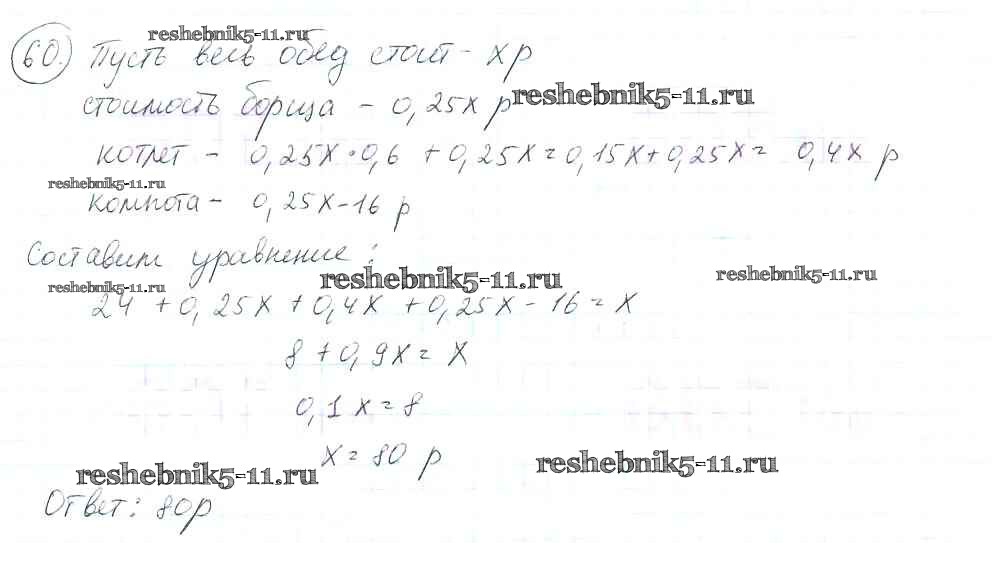 reshebnik5-11.ru
60. Пусть весь обед стоит - x р
стоимость борща - 0,25x р reshebnik5-11.ru
котлет - 0,25x·0,6 + 0,25x = 0,15x+0,25x = 0,4x р
reshebnik5-11.ru
компота - 0,25x-16 р
Составим уравнение:
reshebnik5-11.ru reshebnik5-11.ru
reshebnik5-11.ru
24 + 0,25x + 0,4x + 0,25x - 16 = x
8 + 0,9x = x
0,1x = 8
x = 80 р
reshebnik5-11.ru reshebnik5-11.ru
Ответ: 80р